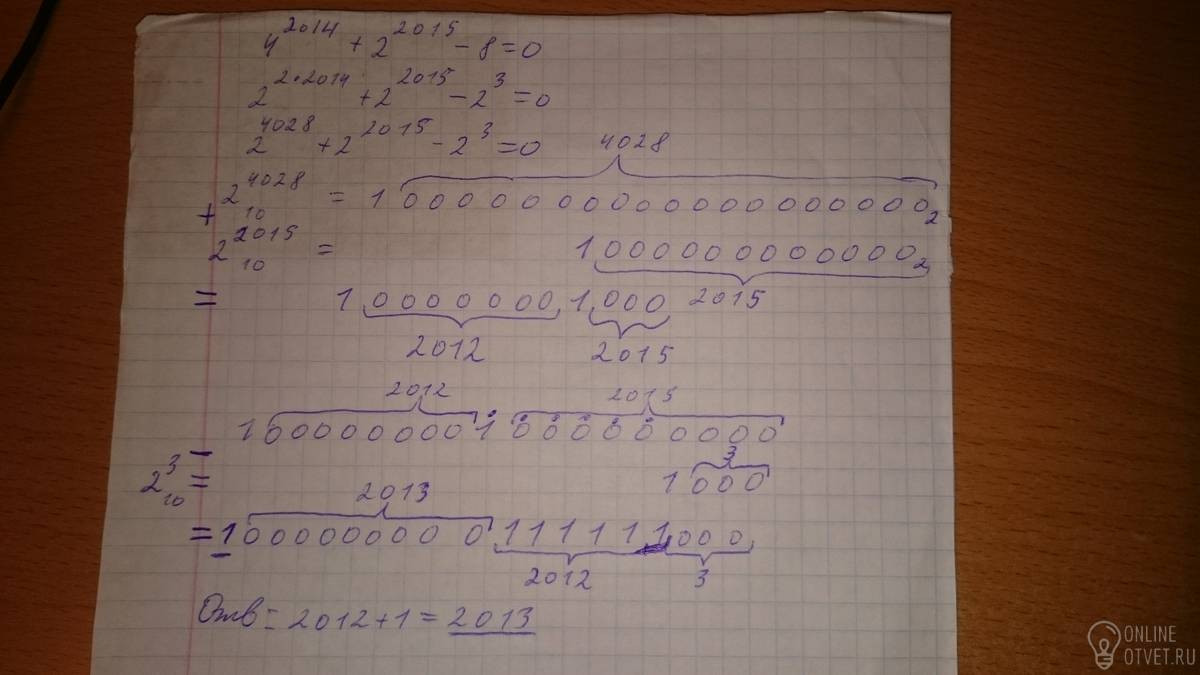 4^2014 + 2^2015 - 8 = 0
2^2·2014 + 2^2015 - 2^3 = 0
2^4028 + 2^2015 - 2^3 = 0
4028
+ 2^4028_10 = 1 0000000000000000000_2
2^2015_10 = 1 0000000000000_2
2015
= 1 0000000 1 000
2012 2015
2012 2015
1 00000000 1 000000000
-
3
2^3_10 = 1 000
2013
= 1 000000000 111111 000
2012 3
Отв = 2012 + 1 = 2013
ONLINE
OTVET.RU